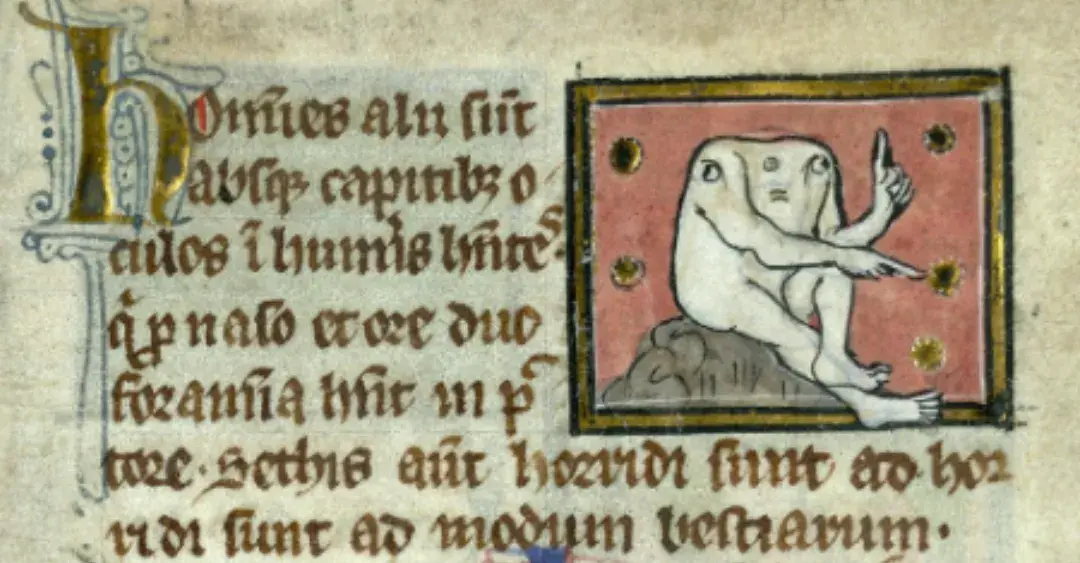 hom̄ıes alii sūt
absq; capitib; o
culos ı̄ hum̄is hn̄tes
q̄ p naso et ore duo
foramīa hn̄t in p̄
tore. Sethis aūt horridi sunt ad hor
ridi sunt ad modum bestiarum.